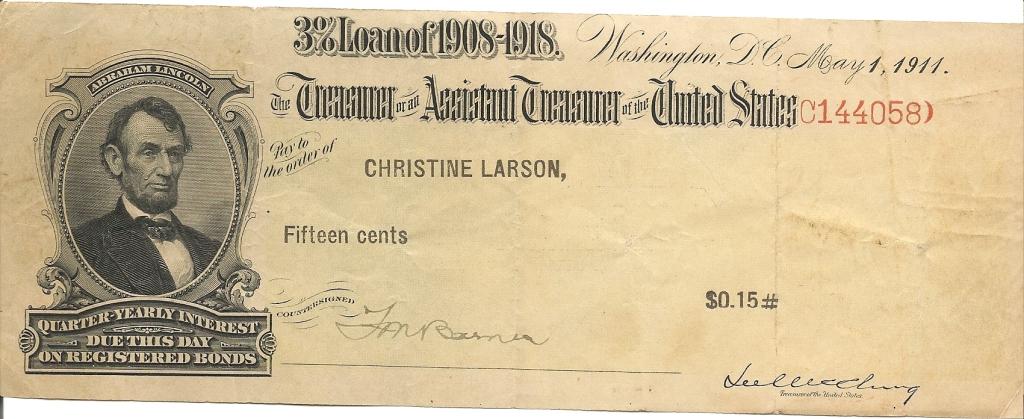 3% Loan of 1908-1918.
Washington, D.C. May 1, 1911.
The Treasurer or an Assistant Treasurer of the United States
C144058)
ABRAHAM LINCOLN
Pay to
the order of
CHRISTINE LARSON,
Fifteen cents
$0.15#
COUNTERSIGNED
QUARTER-YEARLY INTEREST
DUE THIS DAY
ON REGISTERED BONDS
Lee McClung
Treasurer of the United States